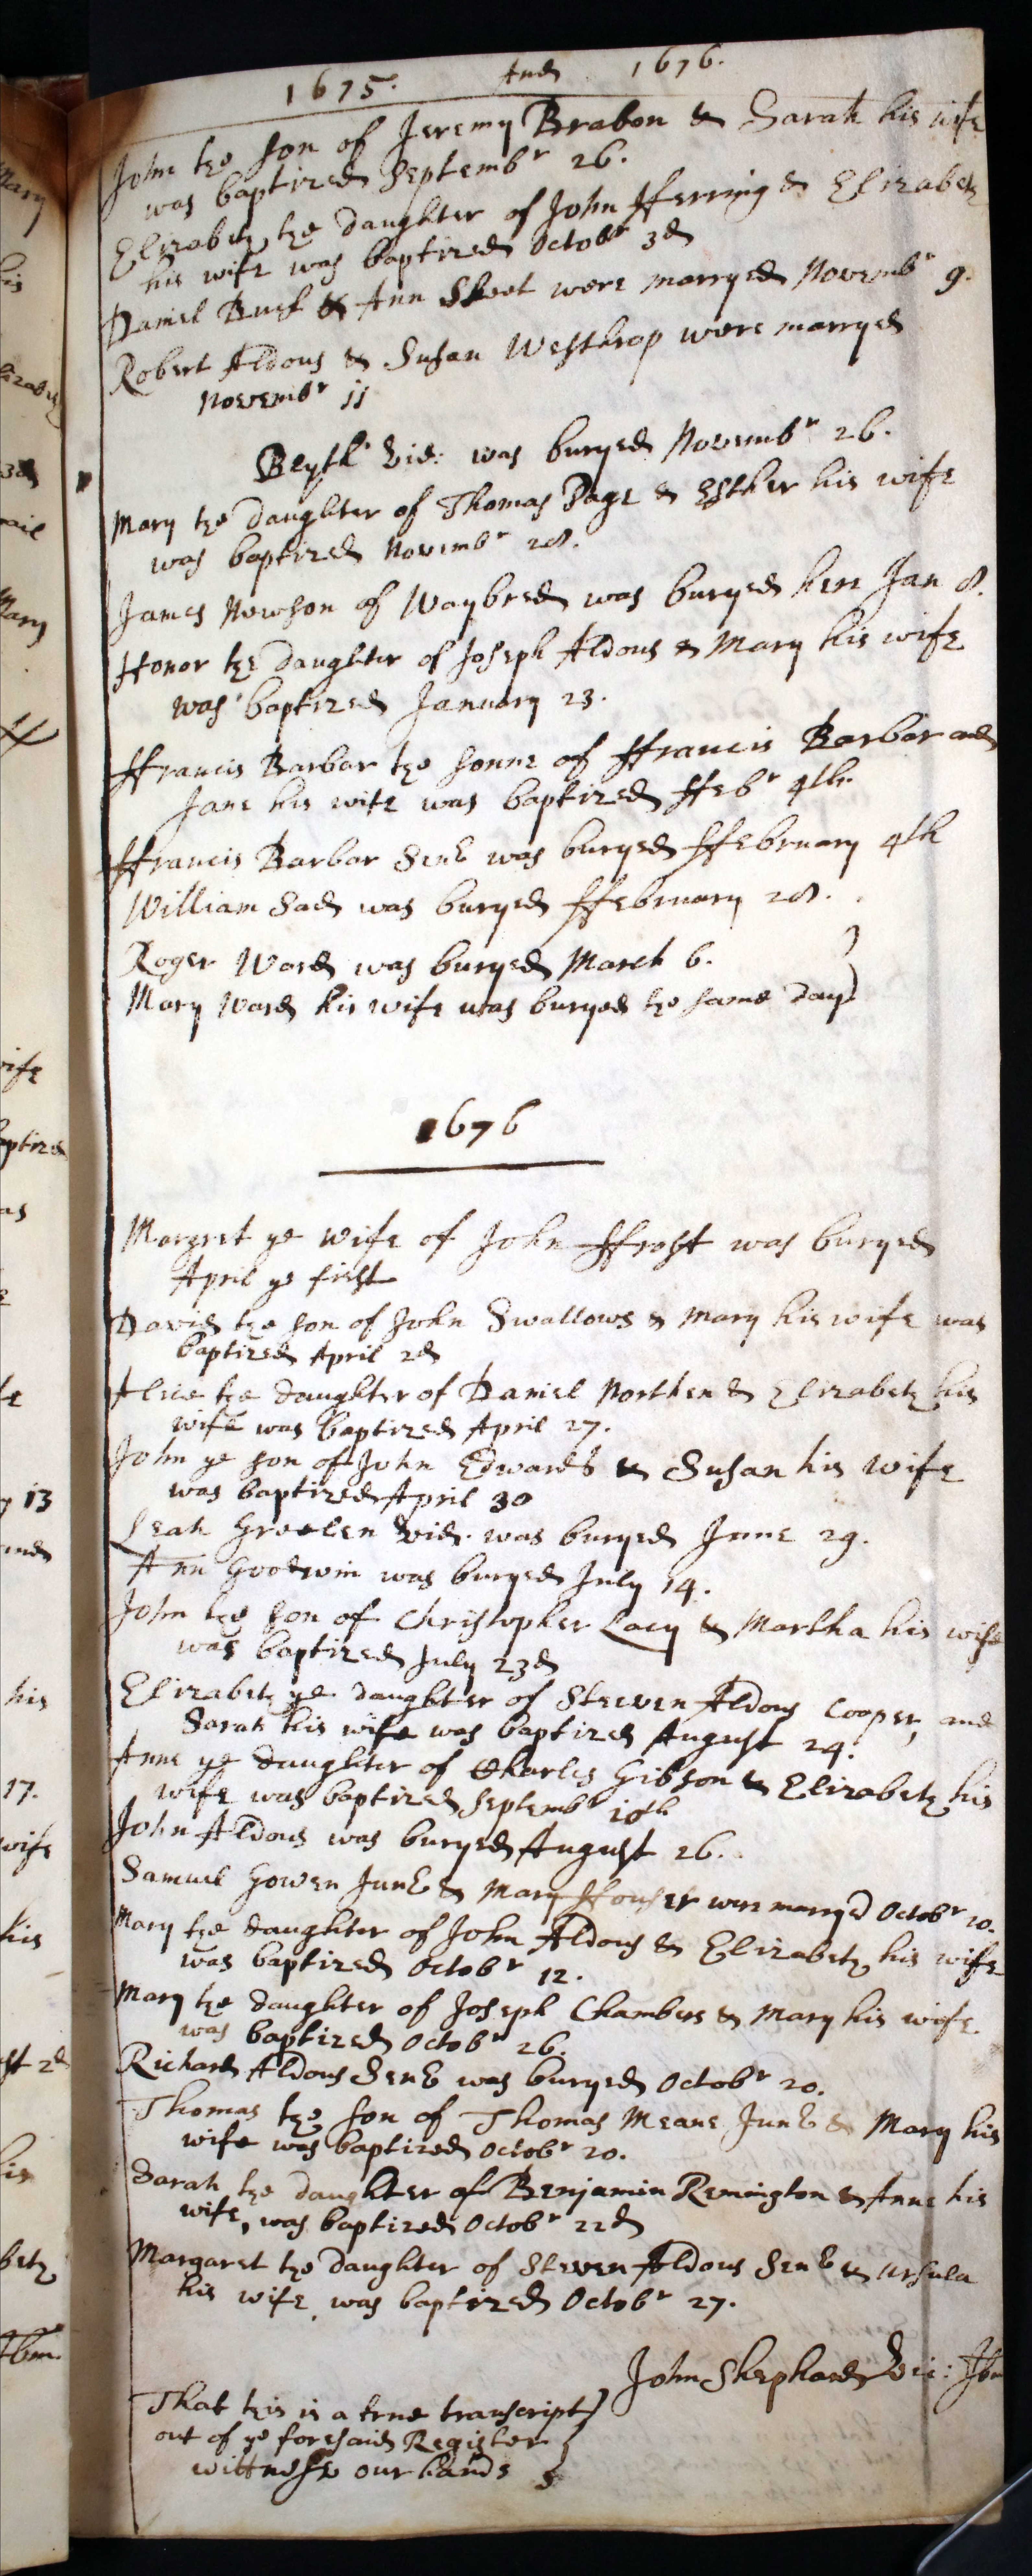 1675. And 1676.
John the son of Jeremy Brabon & Sarah his wife
was baptized Septembr 26.
Elizabeth the daughter of John Fferring & Elizabeth
his wife was baptized Octobr 3d
Daniel Buck & Ann Skeet were marryed Novembr 9.
Robert Aldous & Susan Westhrop were marryed
Novembr 11
Blyth Vid: was buryed Novembr 26.
Mary the daughter of Thomas Page & Esther his wife
was baptized Novembr 28.
James Nowson of Waybred was buryed here Jan 8.
Honor the daughter of Joseph Aldous & Mary his wife
was baptized January 23.
Ffrancis Barbor the sonne of Ffrancis Barbor and
Jane his wife was baptized Ffebr 4th
Ffrancis Barbor Senr was buryed Ffebruary 4th
William Sad was buryed Ffebruary 28.
Roger Ward was buryed March 6.
Mary Ward his wife was buryed the same day
1676
Margret ye wife of John Ffrost was buryed
April ye first
David the son of John Swallows & Mary his wife was
baptized April 2d
Alice the daughter of Daniel Northen & Elizabeth his
wife was baptized April 27.
John ye son of John Edwards & Susan his wife
was baptized April 30
Leah Groolen Vid. was buryed June 29.
Ann Goodwin was buryed July 14.
John the son of Christopher Lacy & Martha his wife
was baptized July 23d
Elizabeth ye daughter of Steeven Aldous Cooper, and
Sarah his wife was baptized August 24.
Anne ye daughter of Charles Gibson & Elizabeth his
wife was baptized Septembr 10th
John Aldous was buryed August 26.
Samuel Gowen Junr & Mary were marry'd Octobr 10.
Mary the daughter of John Aldous & Elizabeth his wife
was baptized Octobr 12.
Mary the daughter of Joseph Chambers & Mary his wife
was baptized Octobr 26.
Richard Aldous Senr was buryed Octobr 20.
Thomas the son of Thomas Meane Junr & Mary his
wife was baptized Octobr 20.
Sarah the daughter of Benjamin Remington & Anne his
wife, was baptized Octobr 22d
Margaret the daughter of Steven Aldous Senr & Ursula
his wife was baptized Octobr 27.
John Shephard Vic: Ibm
That this is a true transcript
out of ye foresaid Register
wittnesse our hands